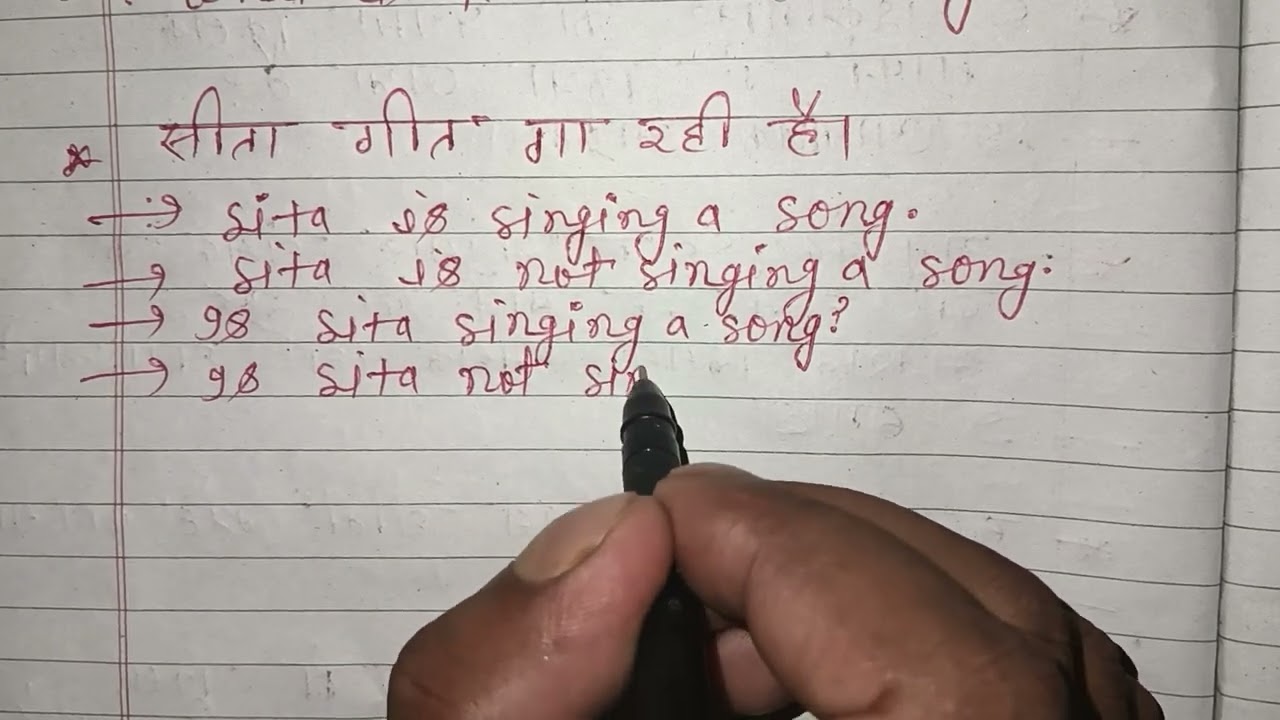 * सीता गीत गा रही है।
→ sita is singing a song.
→ sita is not singing a song.
→ Is sita singing a song?
→ Is sita not sin